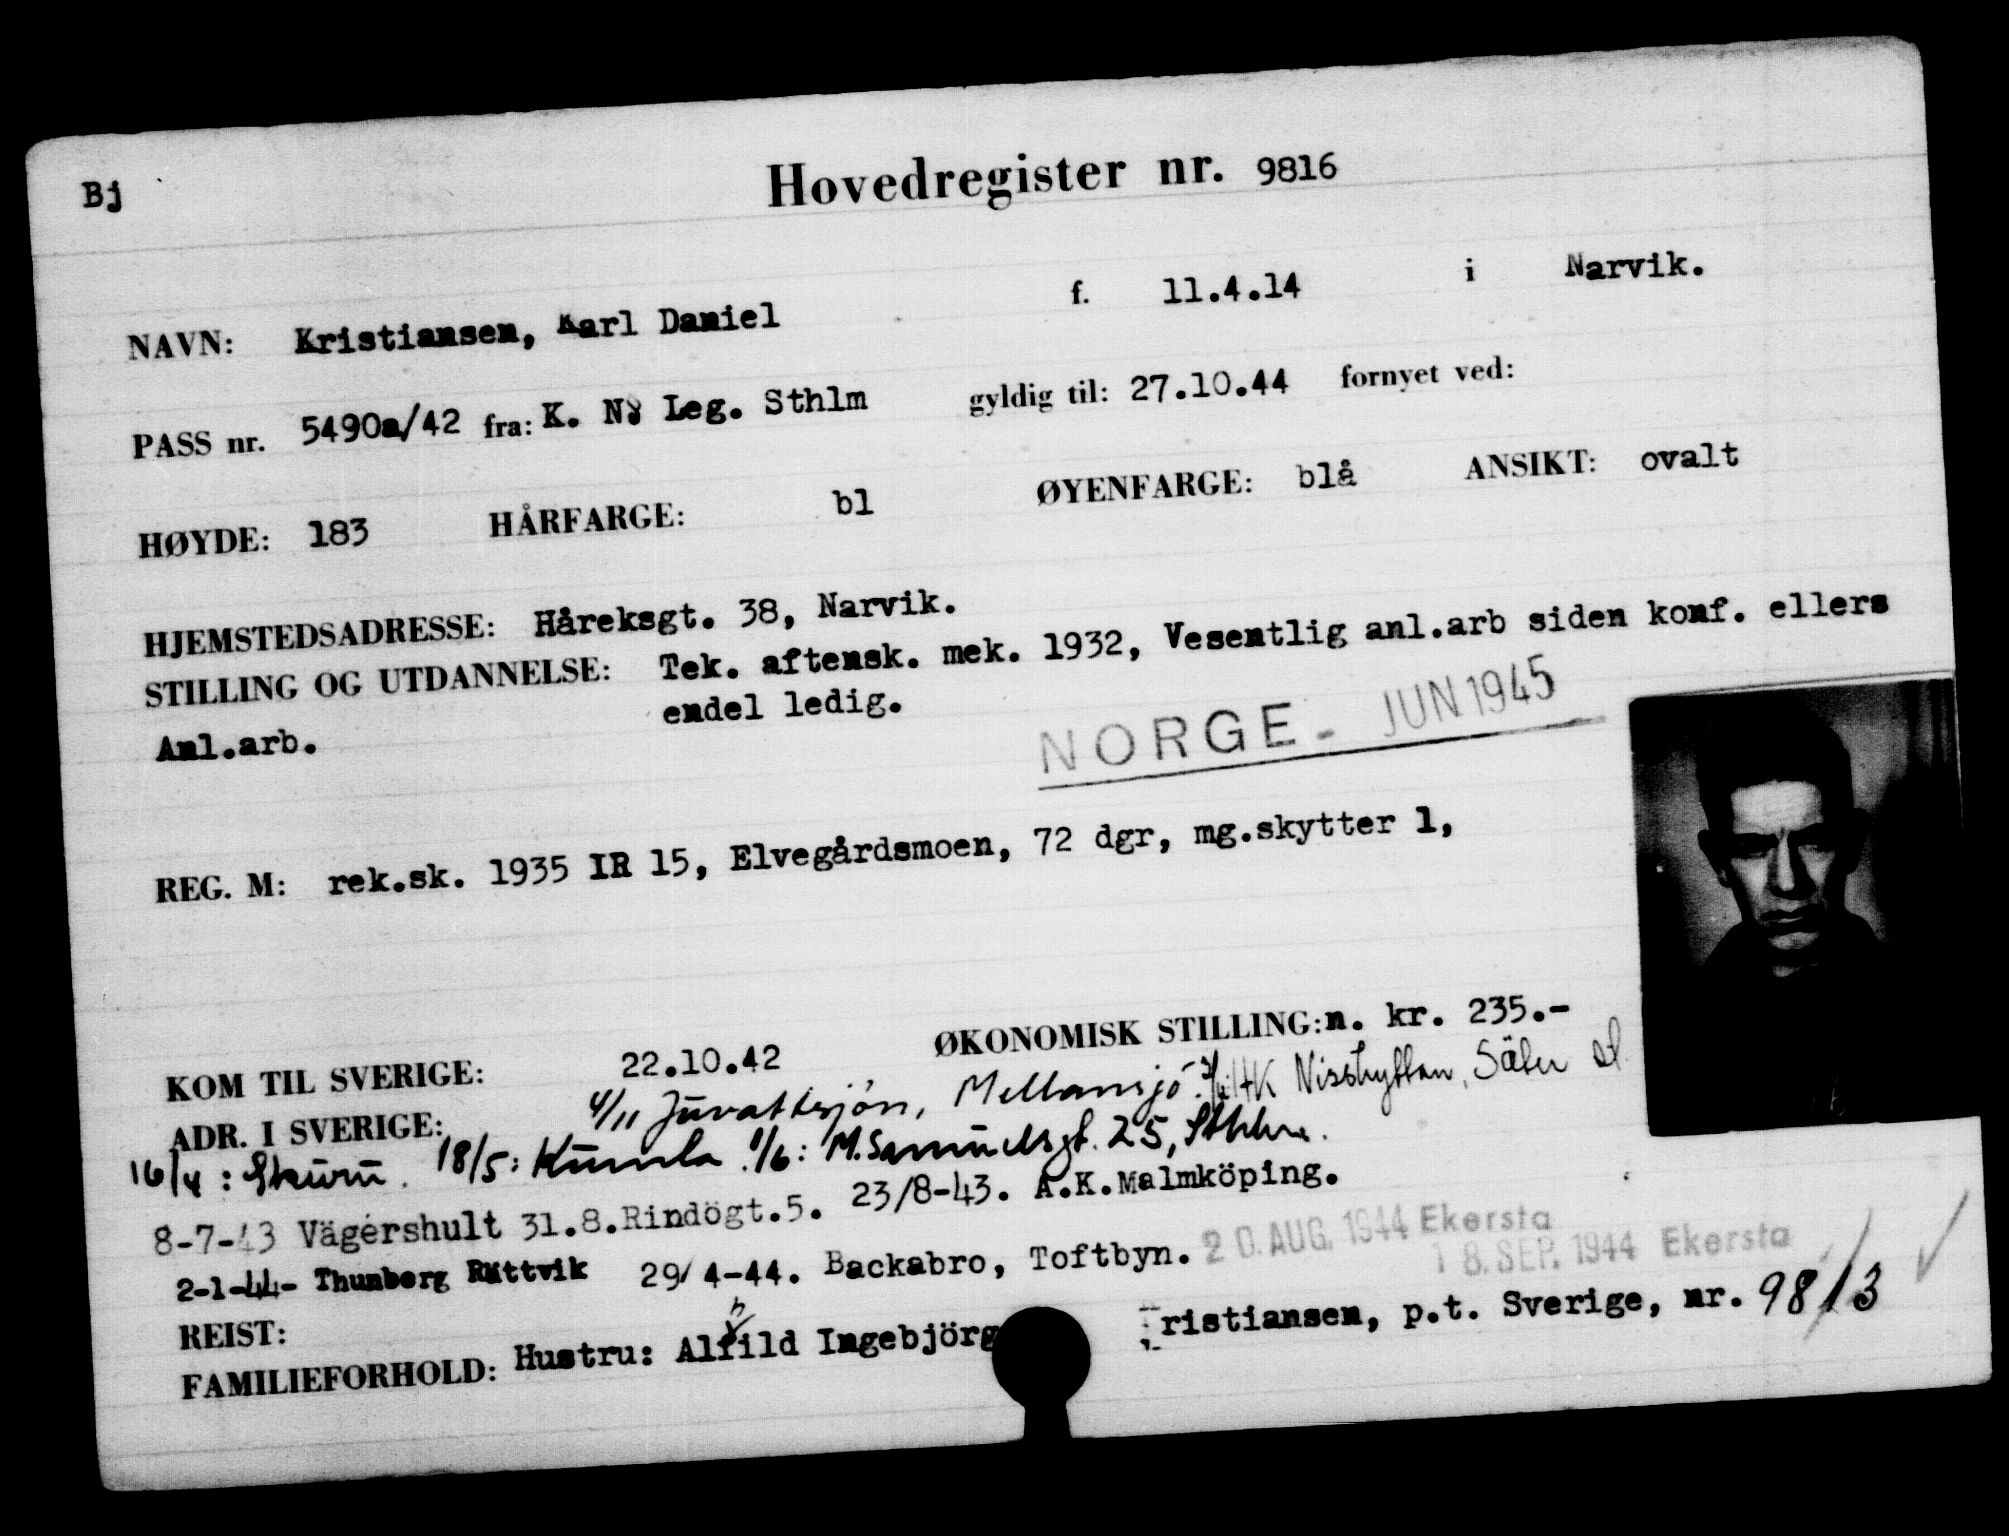 Bj
Hovedregister nr. 9816
NAVN: Kristiansen, Karl Daniel f. 11.4.14 i Narvik.
PASS nr. 5490a/42 fra: K. N. Leg. Sthlm gyldig til: 27.10.44 fornyet ved:
HØYDE: 183 HÅRFARGE: bl ØYENFARGE: blå ANSIKT: ovalt
HJEMSTEDSADRESSE: Håreksgt. 38, Narvik.
STILLING OG UTDANNELSE: Tek. aftensk. mek. 1932, Vesentlig anl.arb siden konf. ellers
endel ledig.
Anl.arb.
NORGE - JUN 1945
REG. M: rek.sk. 1935 IR 15, Elvegårdsmoen, 72 dgr, mg.skytter 1,
KOM TIL SVERIGE: 22.10.42 ØKONOMISK STILLING: n. kr. 235.-
ADR. I SVERIGE: 4/11 Juvattsjön, Mellansjö. HK Nisshyttan, Säter
16/4: Skuru. 18/5: Kumla. 1/6: M. Samuelsgt. 25, Sthlm.
8-7-43 Vägershult 31.8. Rindögt.5. 23/8-43. A.K.Malmköping.
2-1-44- Thunborg Rättvik 29/4-44. Backabro, Toftbyn. 20. AUG. 1944 Ekersta
18. SEP. 1944 Ekersta
REIST:
FAMILIEFORHOLD: Hustru: Alfhild Ingebjörg Kristiansen, p.t. Sverige, nr. 9813